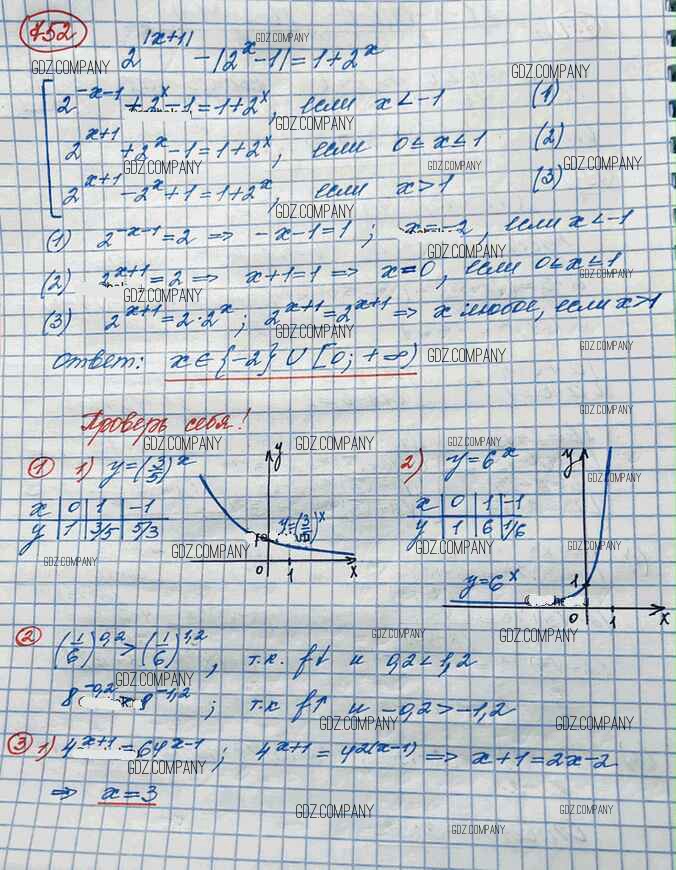 752
2^{|x+1|} - |2^x - 1| = 1 + 2^x
2^{-x-1} + 2^x - 1 = 1 + 2^x, если x < -1 (1)
2^{x+1} + 2^x - 1 = 1 + 2^x, если 0 ≤ x ≤ 1 (2)
2^{x+1} - 2^x + 1 = 1 + 2^x, если x > 1 (3)
(1) 2^{-x-1} = 2 => -x-1 = 1 ; x = -2, если x < -1
(2) 2^{x+1} = 2 => x+1 = 1 => x = 0, если 0 ≤ x ≤ 1
(3) 2^{x+1} = 2·2^x ; 2^{x+1} = 2^{x+1} => x любое, если x > 1
Ответ: x ∈ {-2} ∪ [0; +∞)
Проверь себя!
① 1) y = (3/5)^x
x | 0 | 1 | -1
y | 1 | 3/5 | 5/3
y
y = (3/5)^x
1
0 1 x
2) y = 6^x
x | 0 | 1 | -1
y | 1 | 6 | 1/6
y
y = 6^x
1
0 1 x
② (1/6)^{0,2} > (1/6)^{1,2}, т.к. f↓ и 0,2 < 1,2
8^{-0,2} 8^{-1,2} ; т.к f↑ и -0,2 > -1,2
③ 1) 4^{x+1} = 64^{x-1} ; 4^{x+1} = 4^{2(x-1)} => x+1 = 2x-2
=> x = 3
GDZ.COMPANY